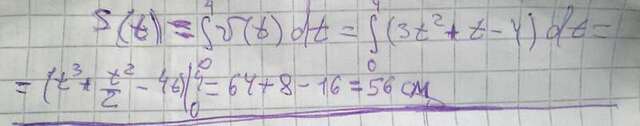 S(t) = ∫₀⁴ v(t) dt = ∫₀⁴ (3t² + t - 4) dt =
= (t³ + t²/2 - 4t)|₀⁴ = 64 + 8 - 16 = 56 см